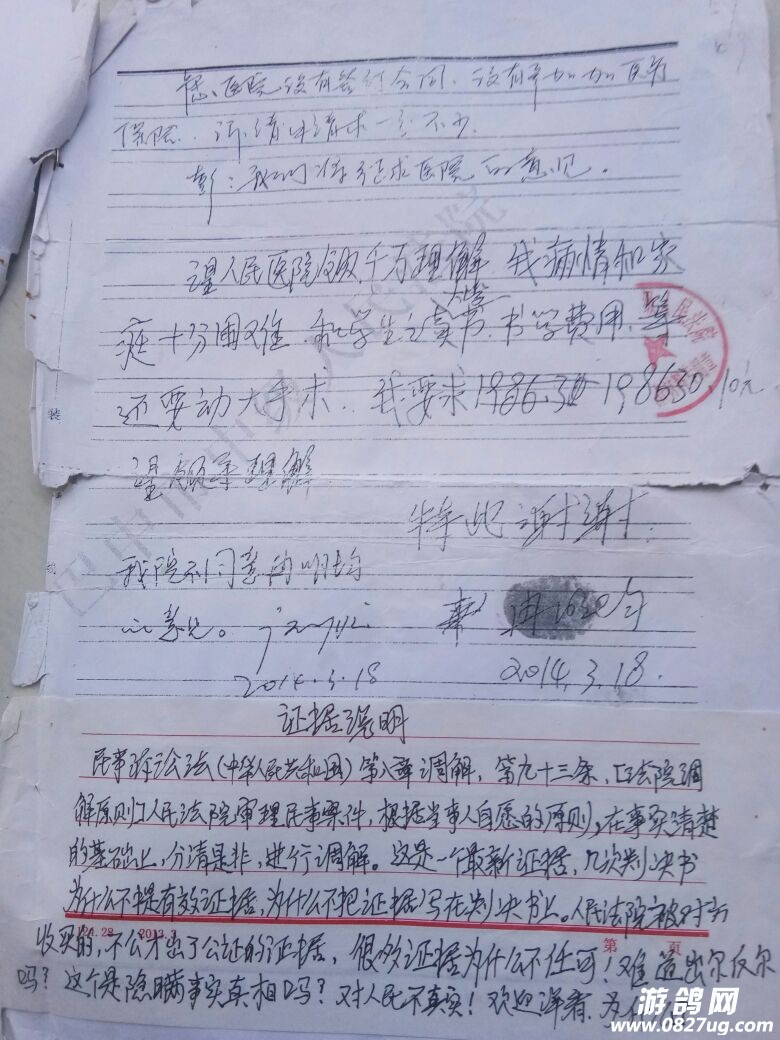 医院没有签订合同.没有
保险.
彭:我们将征求医院的意见。
望人民医院
千万理解.我病情和家
庭十分困难.和学生之读书.书学费用.等
还要动大手术..我要求198630.10元
望领导理解
特此谢谢.
我院不同意
的意见。
2014.3.18
2014.3.18.
证据说明
民事诉讼法(中华人民共和国)第八章调解,第九十三条,[法院调
解原则]人民法院审理民事案件,根据当事人自愿的原则,在事实清楚
的基础上,分清是非,进行调解。这是一个最新证据,几次判决书
为什么不提有效证据,为什么不把证据写在判决书上。人民法院被对方
2013.3
第 页
收买的,不公才出了公证的证据,很多证据为什么不任可!难道出尔反尔
吗?这个是隐瞒事实真相吗?对人民不真实!欢迎
装
巴中市 人民 院
游鸽网
www.0827ug.com